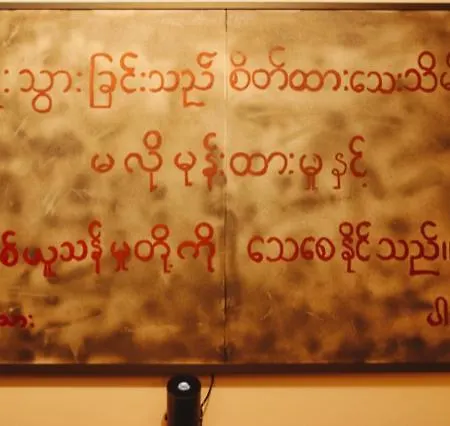 သွား ခြင်းသည် စိတ်ထားသေးသိမ်
မ လို မုန်းထားမှု နှင့်
စ်ယူသန် မှုတို့ ကို သေစေ နိုင် သည်။
သား
ပါ